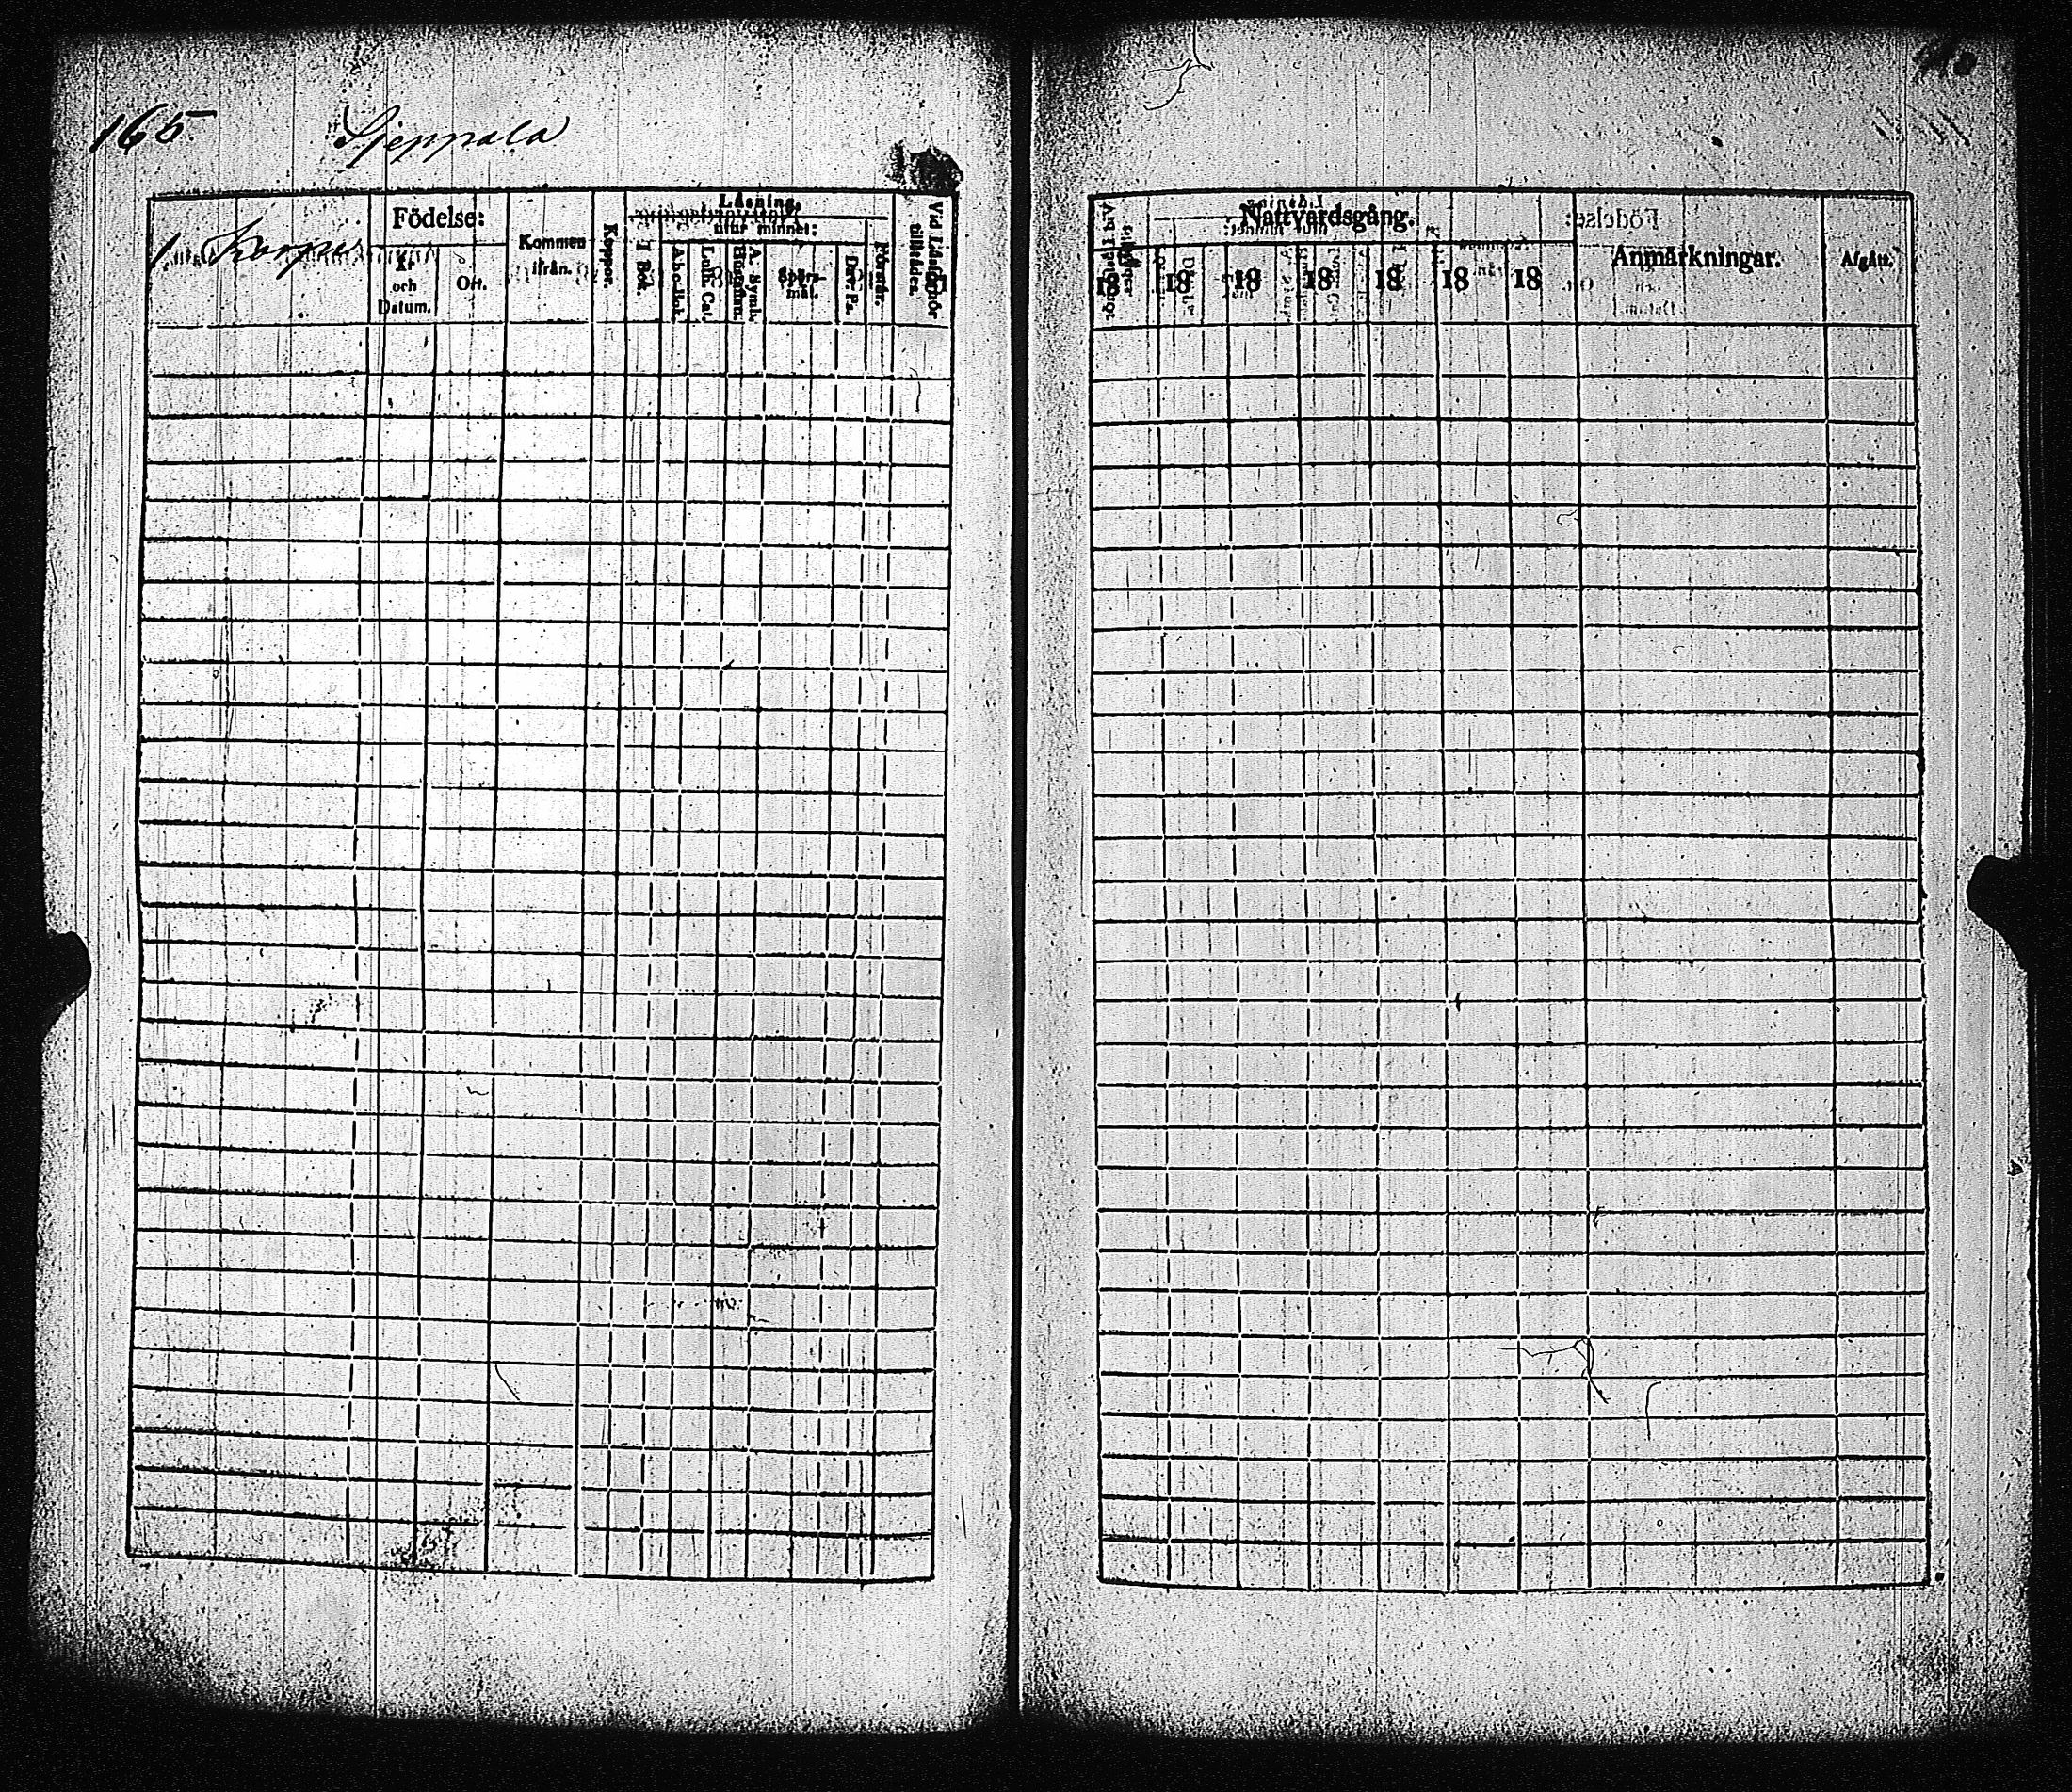 165 Sjeppälä
1 Karpis
Födelse:
År och Datum.
Ort.
Kommen ifrån.
Koppor.
Läsning.
utur minnet:
I Bok.
A b c-Bok.
Luth. Cat.
Hustafl.
A. Symb.
Spörs-mål.
Dav. Ps.
Förstår.
Vid Läsförhör tillstädes.
Nattvardsgång.
18 18 18 18 18 18 18
Anmärkningar.
Afgått.